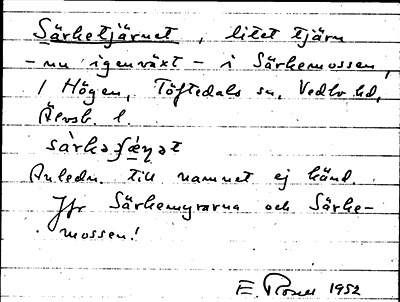 Särketjärnet, litet tjärn
- nu igenväxt - i Särkemossen,
/ Högen, Töftedals sn, Vedbo hd,
Älvsb. l.
sàrkəʃæ̀ṇət
Anledn. till namnet ej känd.
Jfr Särkemyrarna och Särke-
mossen!
E 1952